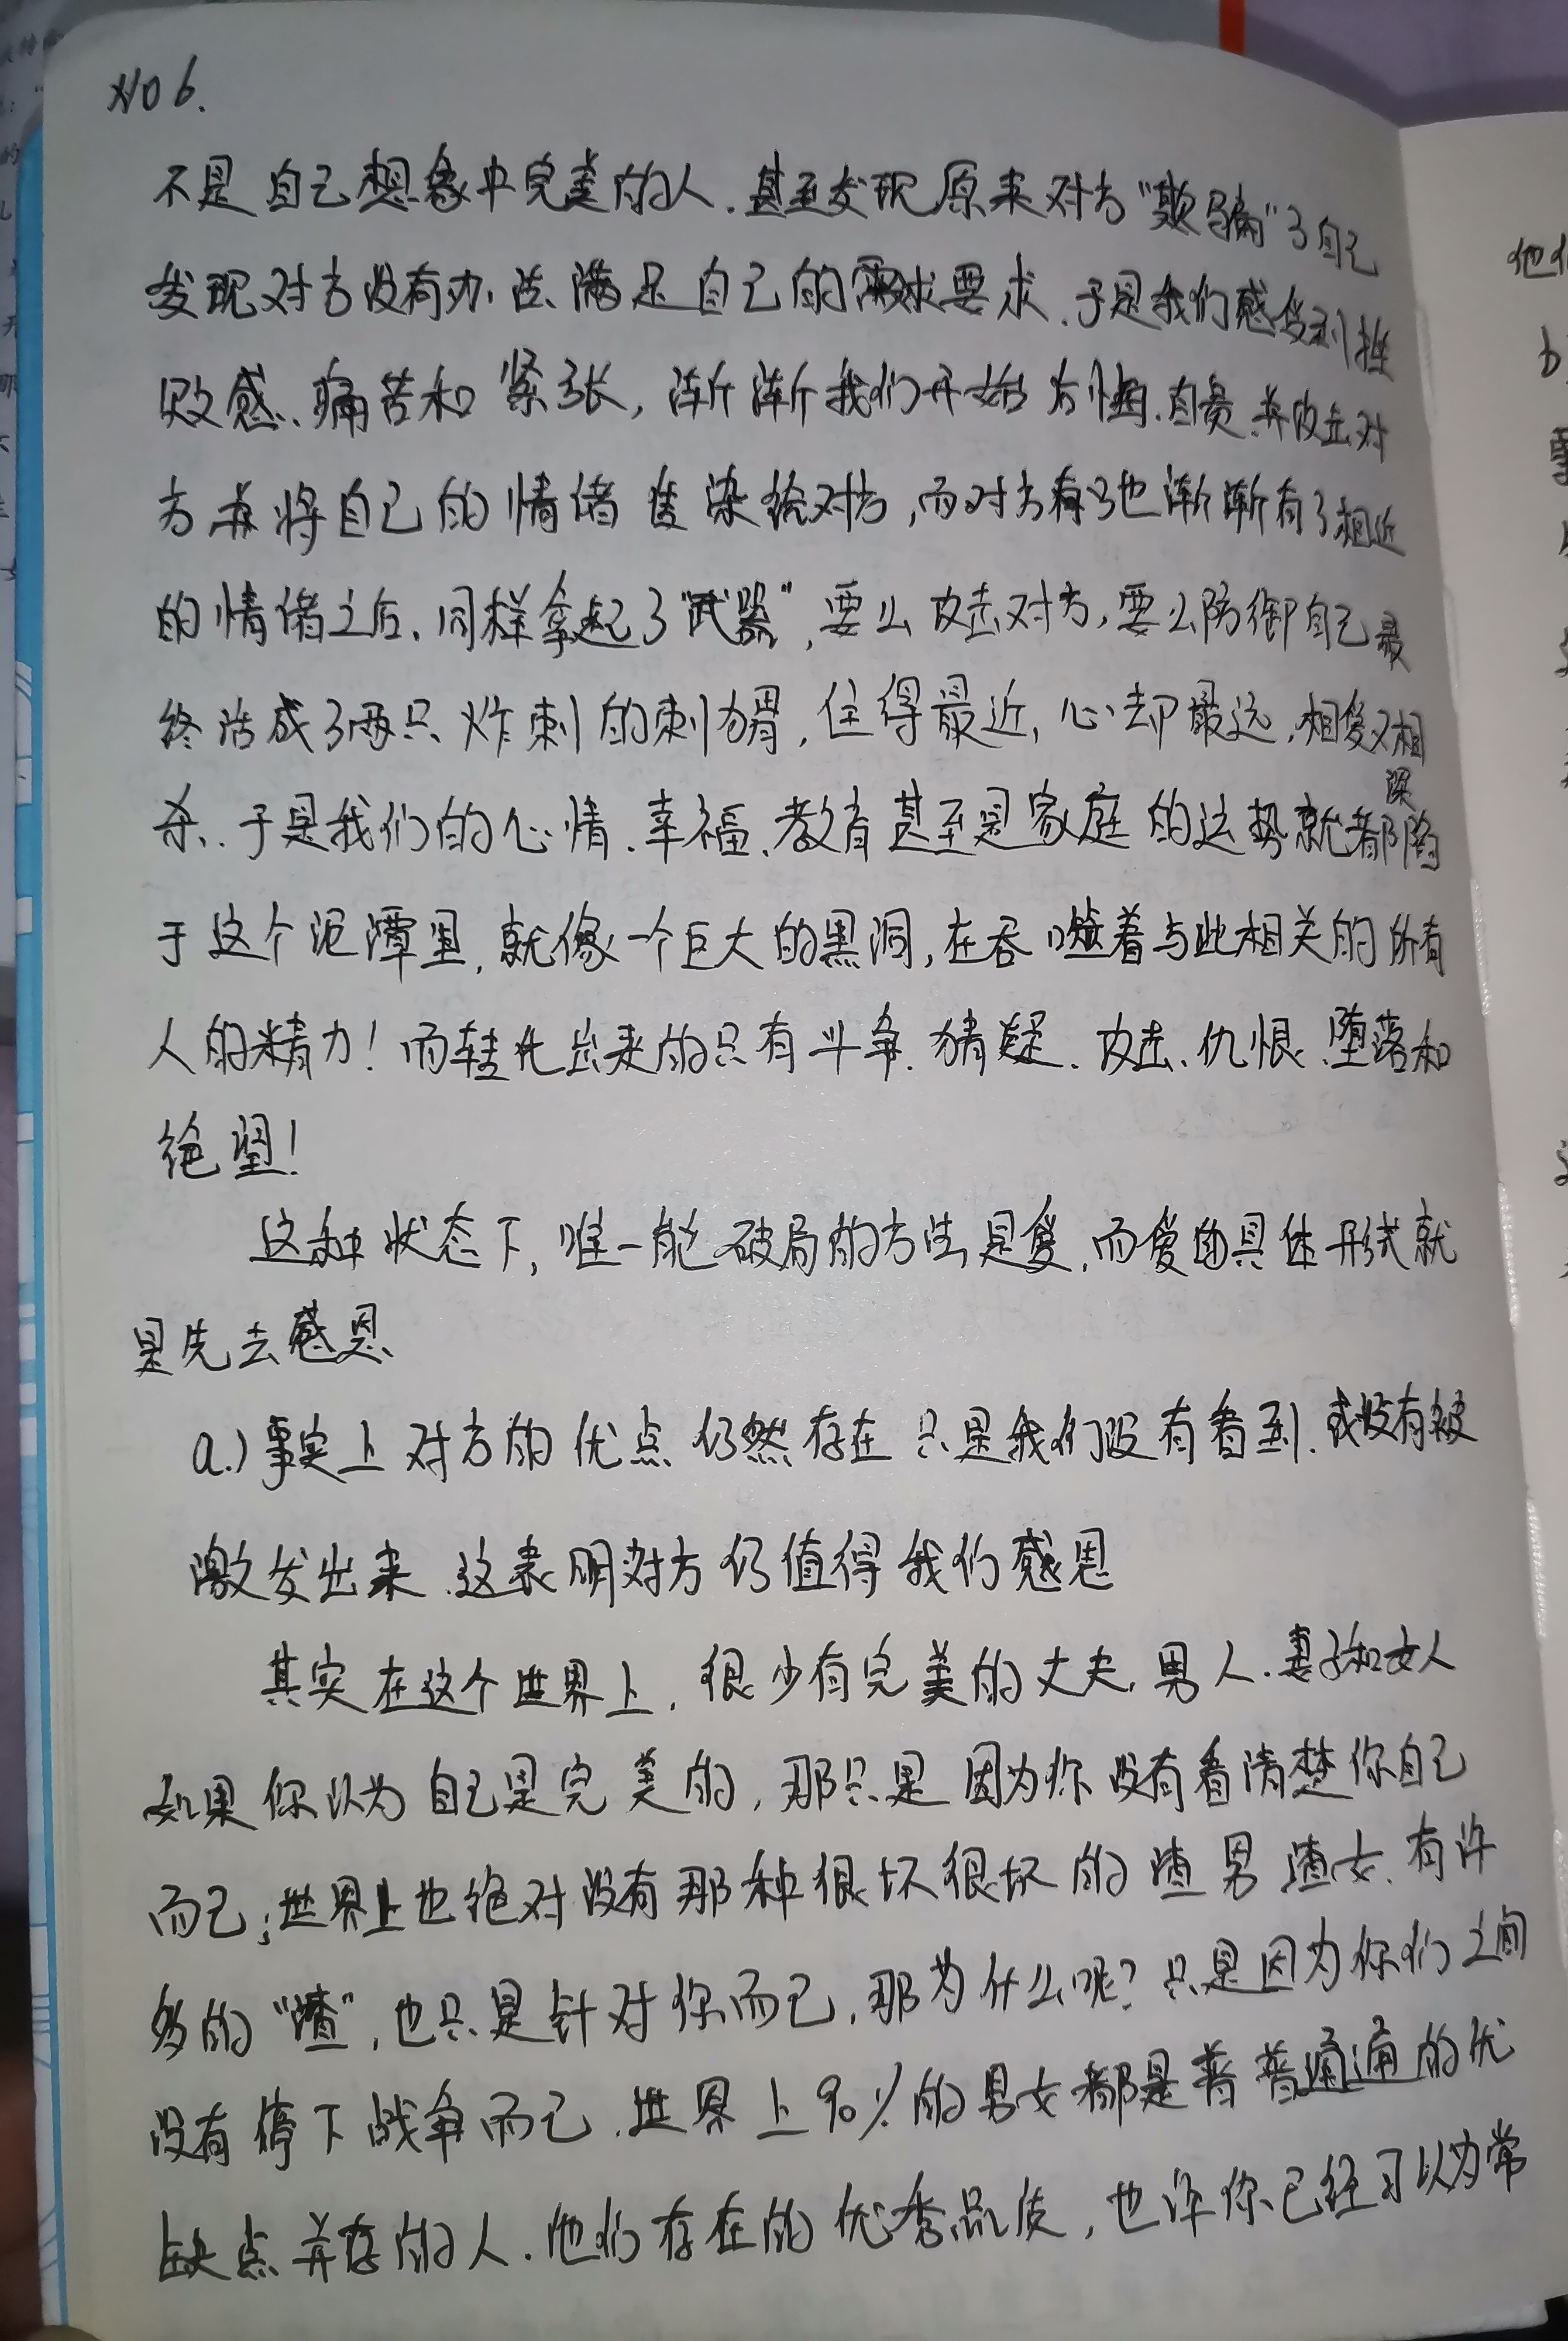 NO 6.
不是自己想象中完美的人、甚至发现原来对方"欺骗"了自己
发现对方没有办法满足自己的需求要求、于是我们感受到挫
败感、痛苦和紧张，渐渐我们开始方恼、自责、并攻击对
方并将自己的情绪传染给对方，而对方有了也渐渐有了相近
的情绪之后、同样拿起了"武器"，要么攻击对方，要么防御自己最
终活成了两只炸刺的刺猬，住得最近，心却最远，相爱又相
杀、于是我们的心情、幸福、教育甚至是家庭的运势就都深陷
于这个泥潭里，就像一个巨大的黑洞，在吞噬着与此相关的所有
人的精力！而转化出来的只有斗争、猜疑、攻击、仇恨、堕落和
绝望！
这种状态下，唯一能破局的方法是爱，而爱的具体形式就
是先去感恩
a.）事实上对方的优点仍然存在只是我们没有看到、或没有被
激发出来、这表明对方仍值得我们感恩
其实在这个世界上，很少有完美的丈夫、男人、妻子和女人
如果你以为自己是完美的，那只是因为你没有看清楚你自己
而已；世界上也绝对没有那种很坏很坏的渣男渣女、有许
多的"渣"，也只是针对你而已，那为什么呢？只是因为你们之间
没有停下战争而已、世界上90%的男女都是普普通通的优
缺点并存的人、他们存在的优秀品质，也许你已经习以为常